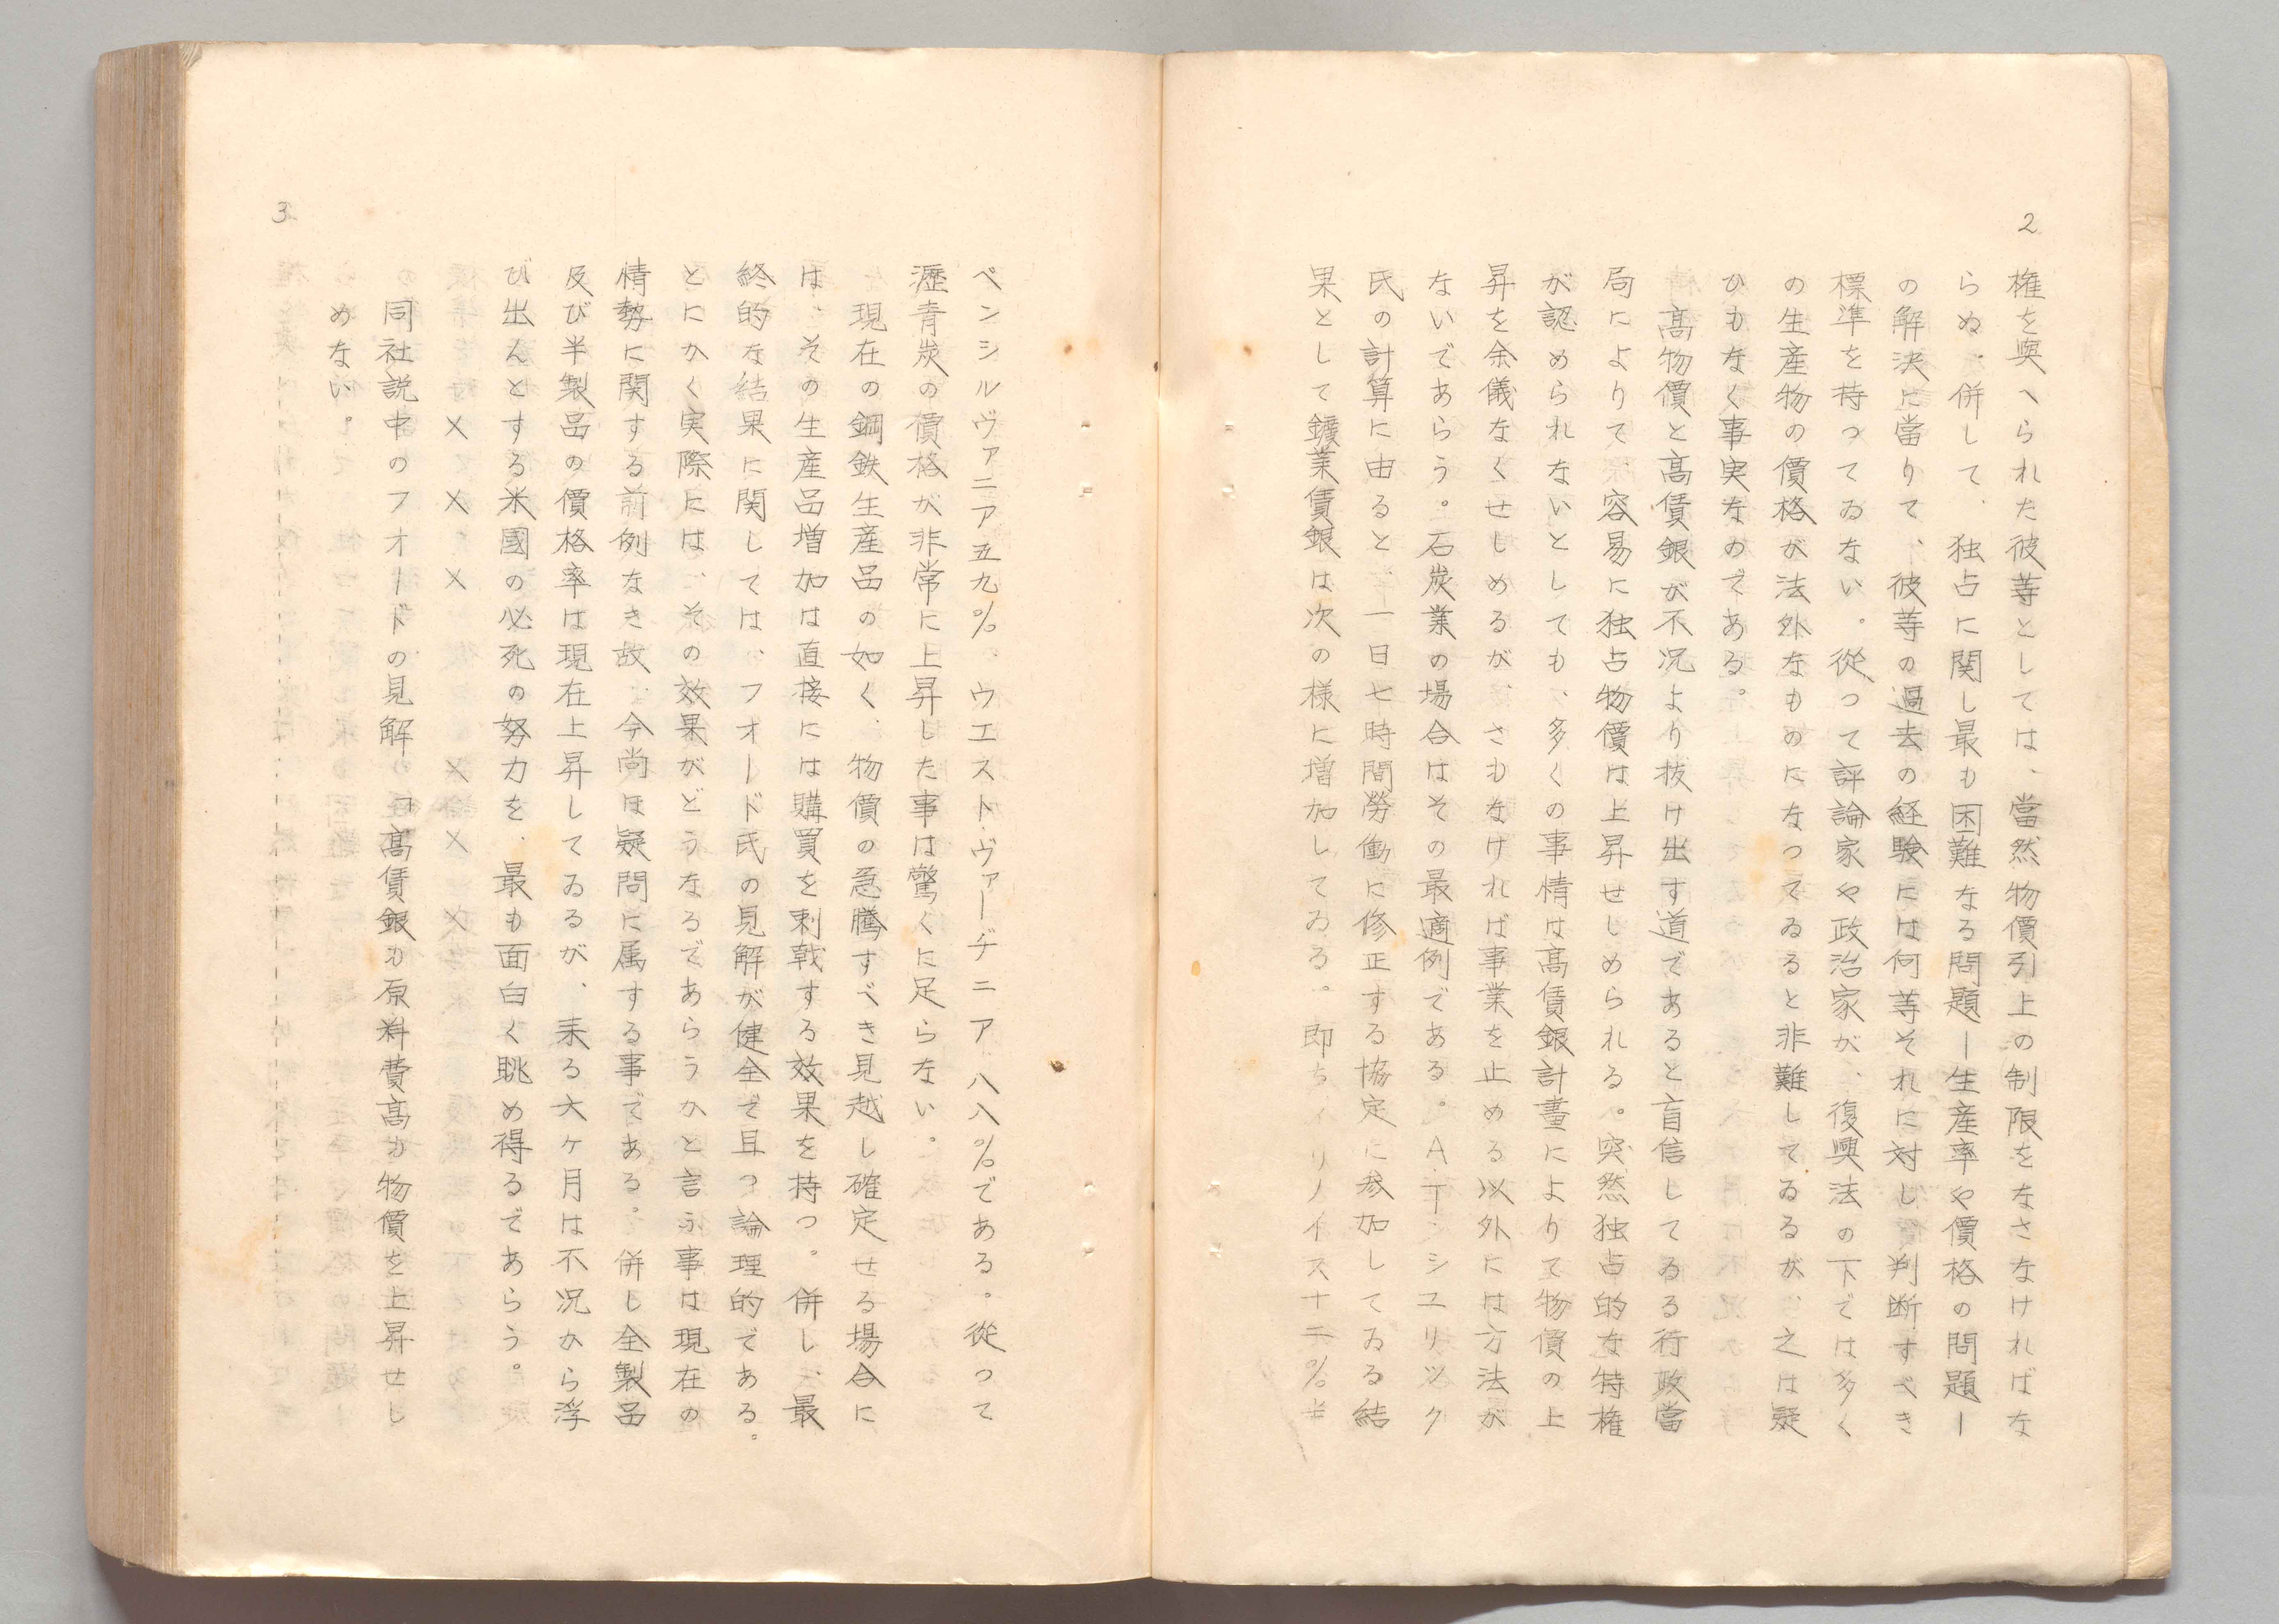 2
権を與へられた彼等としては、當然物價引上の制限をなさなければな
らぬ。併して、独占に関し最も困難なる問題ー生産率や價格の問題ー
の解決に當りて、彼等の過去の経験には何等それに対し判断すべき
標準を持つてゐない。從つて評論家や政治家が、復興法の下では多く
の生産物の價格が法外なものになつてゐると非難してゐるが、之は疑
ひもなく事実なのである。
高物價と高賃銀が不況より抜け出す道であると盲信してゐる行政當
局によりて容易に独占物價は上昇せしめられる。突然独占的な特権
が認められないとしても、多くの事情は高賃銀計畫によりて物價の上
昇を余儀なくせしめるが、さもなければ事業を止める以外には方法が
ないであらう。石炭業の場合はその最適例である。A.T.シユリツク
氏の計算に由ると、一日七時間労働に修正する協定に参加してゐる結
果として鑛業賃銀は次の様に増加してゐる。即ちイリノイス十二%半
ペンシルヴァニア五九%、ウエストヴァーヂニア八八%である。從つて
瀝青炭の價格が非常に上昇した事は驚くに足らない。
現在の鋼鉄生産品の如く、物價の急騰すべき見越し確定せる場合に
は、その生産品増加は直接には購買を刺戟する効果を持つ。併し、最
終的な結果に関しては、フオード氏の見解が健全で且つ論理的である。
とにかく実際には、その効果がどうなるであらうかと言ふ事は現在の
情勢に関する前例なき故、今尚ほ疑問に属する事である。併し全製品
及び半製品の價格率は現在上昇してゐるが、耒る六ヶ月は不況から浮
び出んとする米國の必死の努力を、最も面白く眺め得るであらう。
× × × × × ×
同社説中のフオードの見解の「高賃銀も原料費高も物價を上昇せし
めない。
3